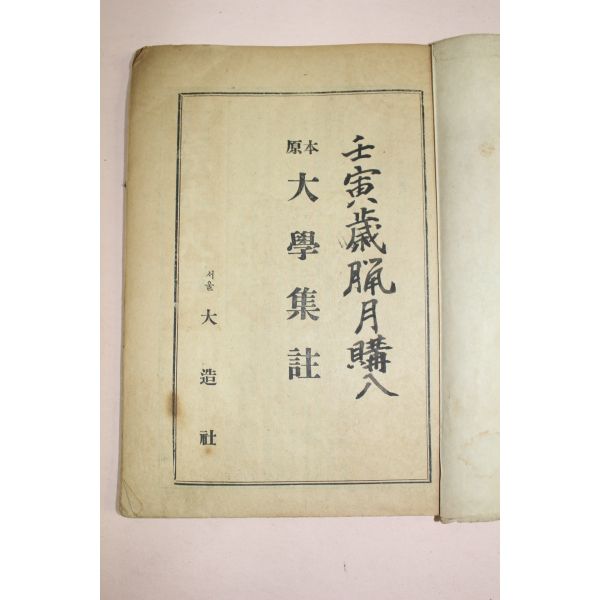 壬寅歲臘月購入
原本
大學集註
서울
大造社